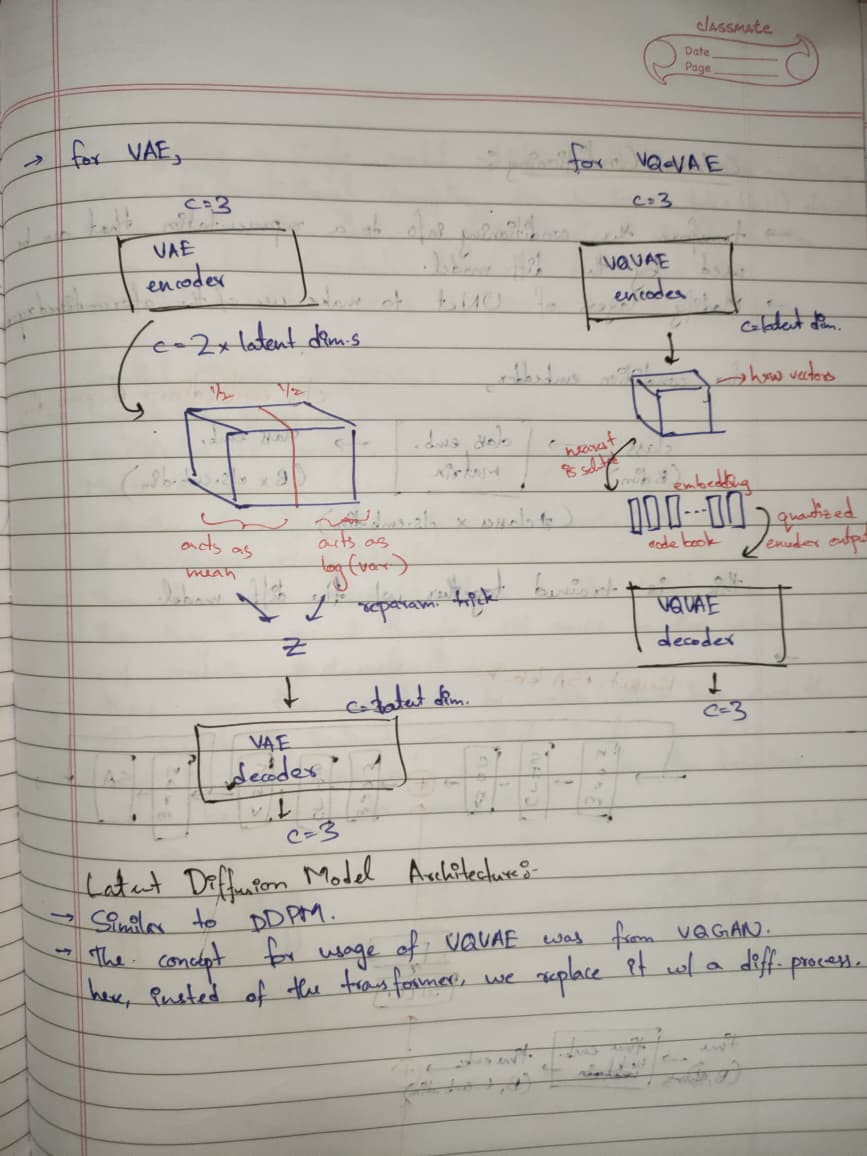 classmate
Date
Page
→ for VAE,
c=3
VAE
encoder
c=2 x latent dim.s
1/2 1/2
acts as
mean
acts as
log(var.)
reparam. trick
z
c=latent dim.
VAE
decoder
c=3
for VQVAE
c=3
VQVAE
encoder
c=latent dim.
→ hxw vectors
nearest
embedding
codebook
quantized
encoder output
VQVAE
decoder
c=3
Latent Diffusion Model Architecture:-
→ Similar to DDPM.
→ The concept for usage of VQVAE was from VQGAN.
here, insted of the transformer, we replace it w/ a diff. process.